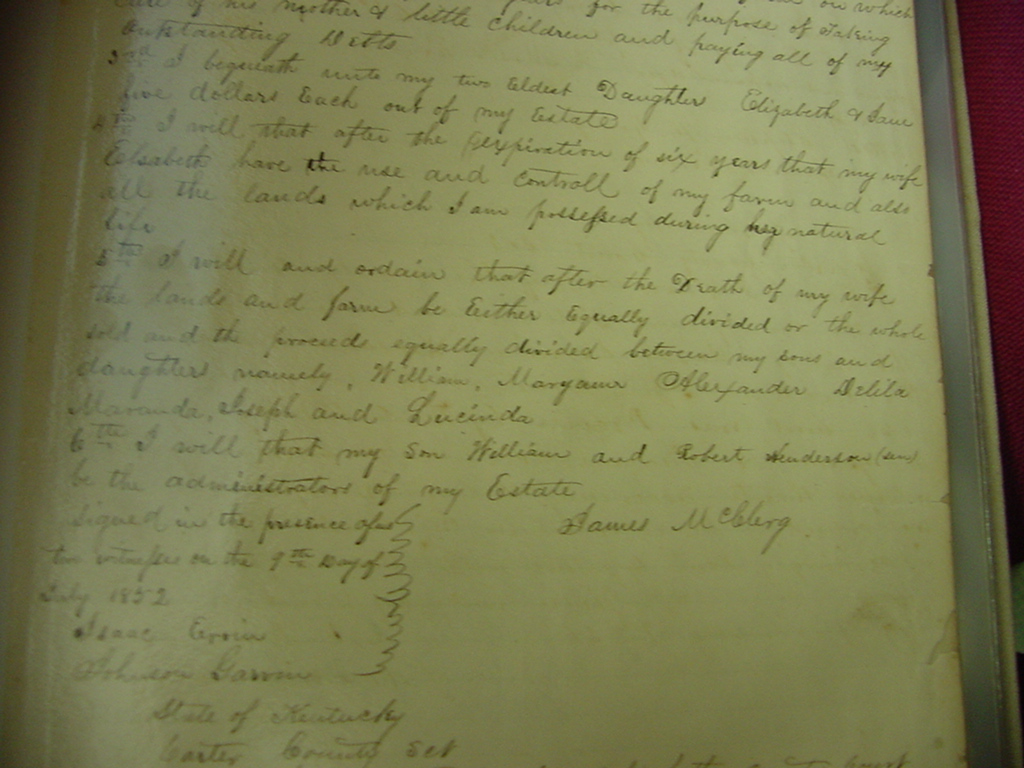 care of his mother & little children and paying all of my
for the purpose of Taking
on which
outstanding Debts
3rd I bequeath unto my two Eldest Daughters Elizabeth & Jane
five dollars Each out of my Estate
4th I will that after the Expiration of six years that my wife
Elsabeth have the use and controll of my farm and also
all the lands which I am possessed during her natural
life
5th I will and ordain that after the Death of my wife
the lands and farm be Either Equally divided or the whole
sold and the proceeds equally divided between my sons and
daughters namely, William, Maryann Alexander Delila
Maranda, Joseph and Lucinda
6th I will that my Son William and Robert Henderson (sen)
be the administrators of my Estate
James McClerg
Signed in the presence of us
two witnesses on the 9th Day of
July 1852
Isaac Ervin
Johnson Garvin
State of Kentucky
Carter County Sct